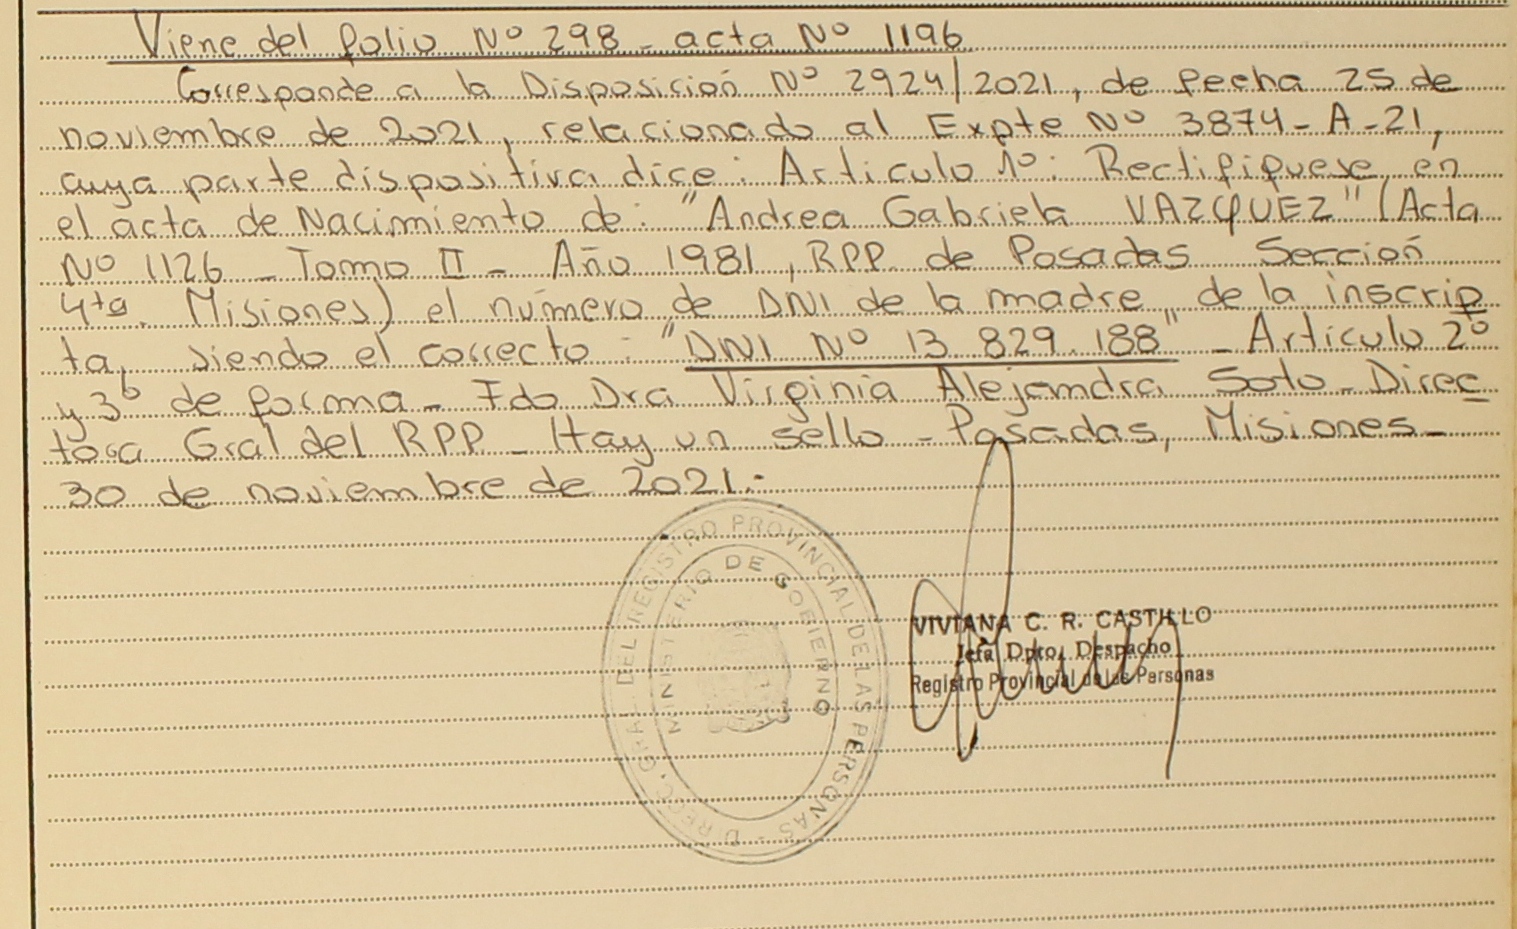 Viene del folio Nº 298 - acta Nº 1196
Corresponde a la Disposición Nº 2924/2021, de fecha 25 de
noviembre de 2021, relacionado al Expte Nº 3874-A-21,
cuya parte dispositiva dice: Articulo 1º: Rectifiquese en
el acta de Nacimiento de: "Andrea Gabriela VAZQUEZ" (Acta
Nº 1126 - Tomo II - Año 1981, RPP. de Posadas Sección
4ta. Misiones) el número de DNI de la madre de la inscrip
ta, siendo el correcto: "DNI Nº 13.829.188" - Artículo 2º
y 3º de forma - Fdo Dra Virginia Alejandra Soto - Direc
tora Gral del RPP - Hay un sello - Posadas, Misiones -
30 de noviembre de 2021.-
DIRECC. GRAL. DEL REGISTRO PROVINCIAL DE LAS PERSONAS -
MINISTERIO DE GOBIERNO
VIVIANA C. R. CASTILLO
Jefa Dpto. Despacho
Registro Provincial de las Personas